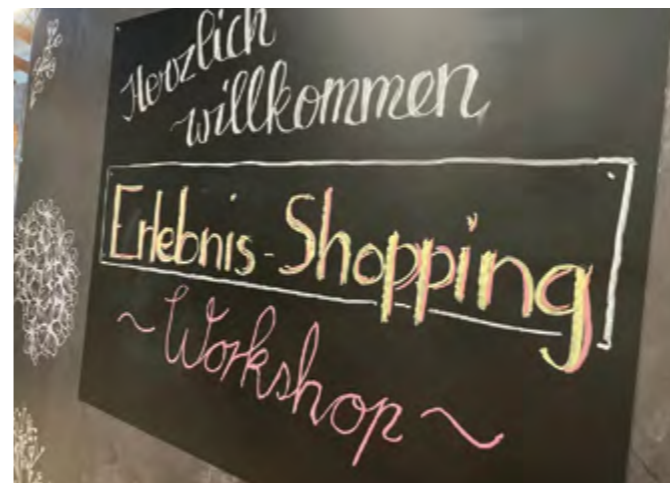 Herzlich
willkommen
Erlebnis-Shopping
~ Workshop ~